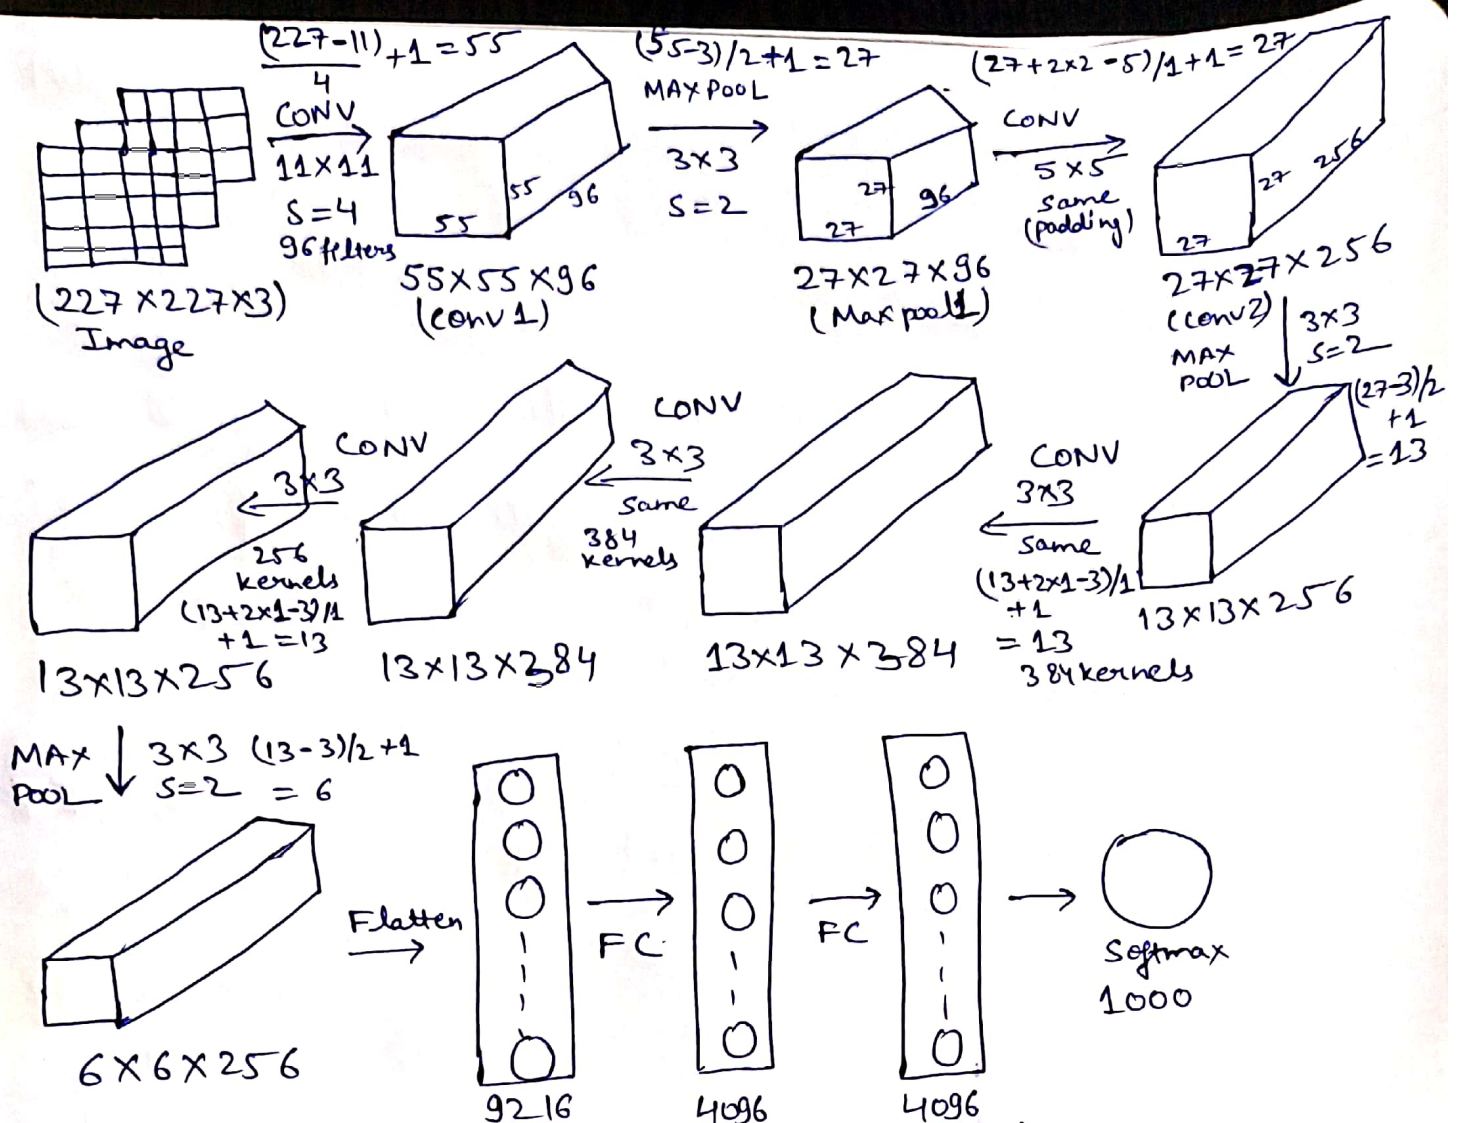 (227-11)/4 + 1 = 55
CONV
11×11
S=4
96 filters
(227×227×3)
Image
55
55
96
55×55×96
(conv 1)
(55-3)/2+1 = 27
MAX POOL
3×3
S=2
27
27
96
27×27×96
(Maxpool1)
(27+2×2-5)/1+1 = 27
CONV
5×5
same
(padding)
27
27
256
27×27×256
(conv2)
MAX
POOL
3×3
S=2
(27-3)/2
+1
=13
13×13×256
CONV
3×3
same
(13+2×1-3)/1
+1
=13
384 kernels
13×13×384
CONV
3×3
same
384
kernels
13×13×384
CONV
3×3
256
kernels
(13+2×1-3)/1
+1 =13
13×13×256
MAX
POOL
3×3 (13-3)/2+1
S=2 = 6
6×6×256
Flatten
9216
FC
4096
FC
4096
Softmax
1000